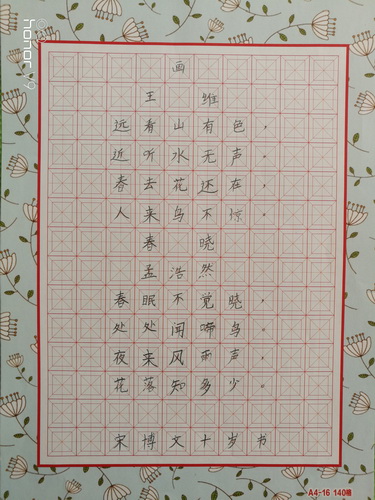 画
王 维
远看山有色，
近听水无声。
春去花还在，
人来鸟不惊。
春 晓
孟浩然
春眠不觉晓，
处处闻啼鸟。
夜来风雨声，
花落知多少。
宋博文十岁书
A4-16 140格
honor